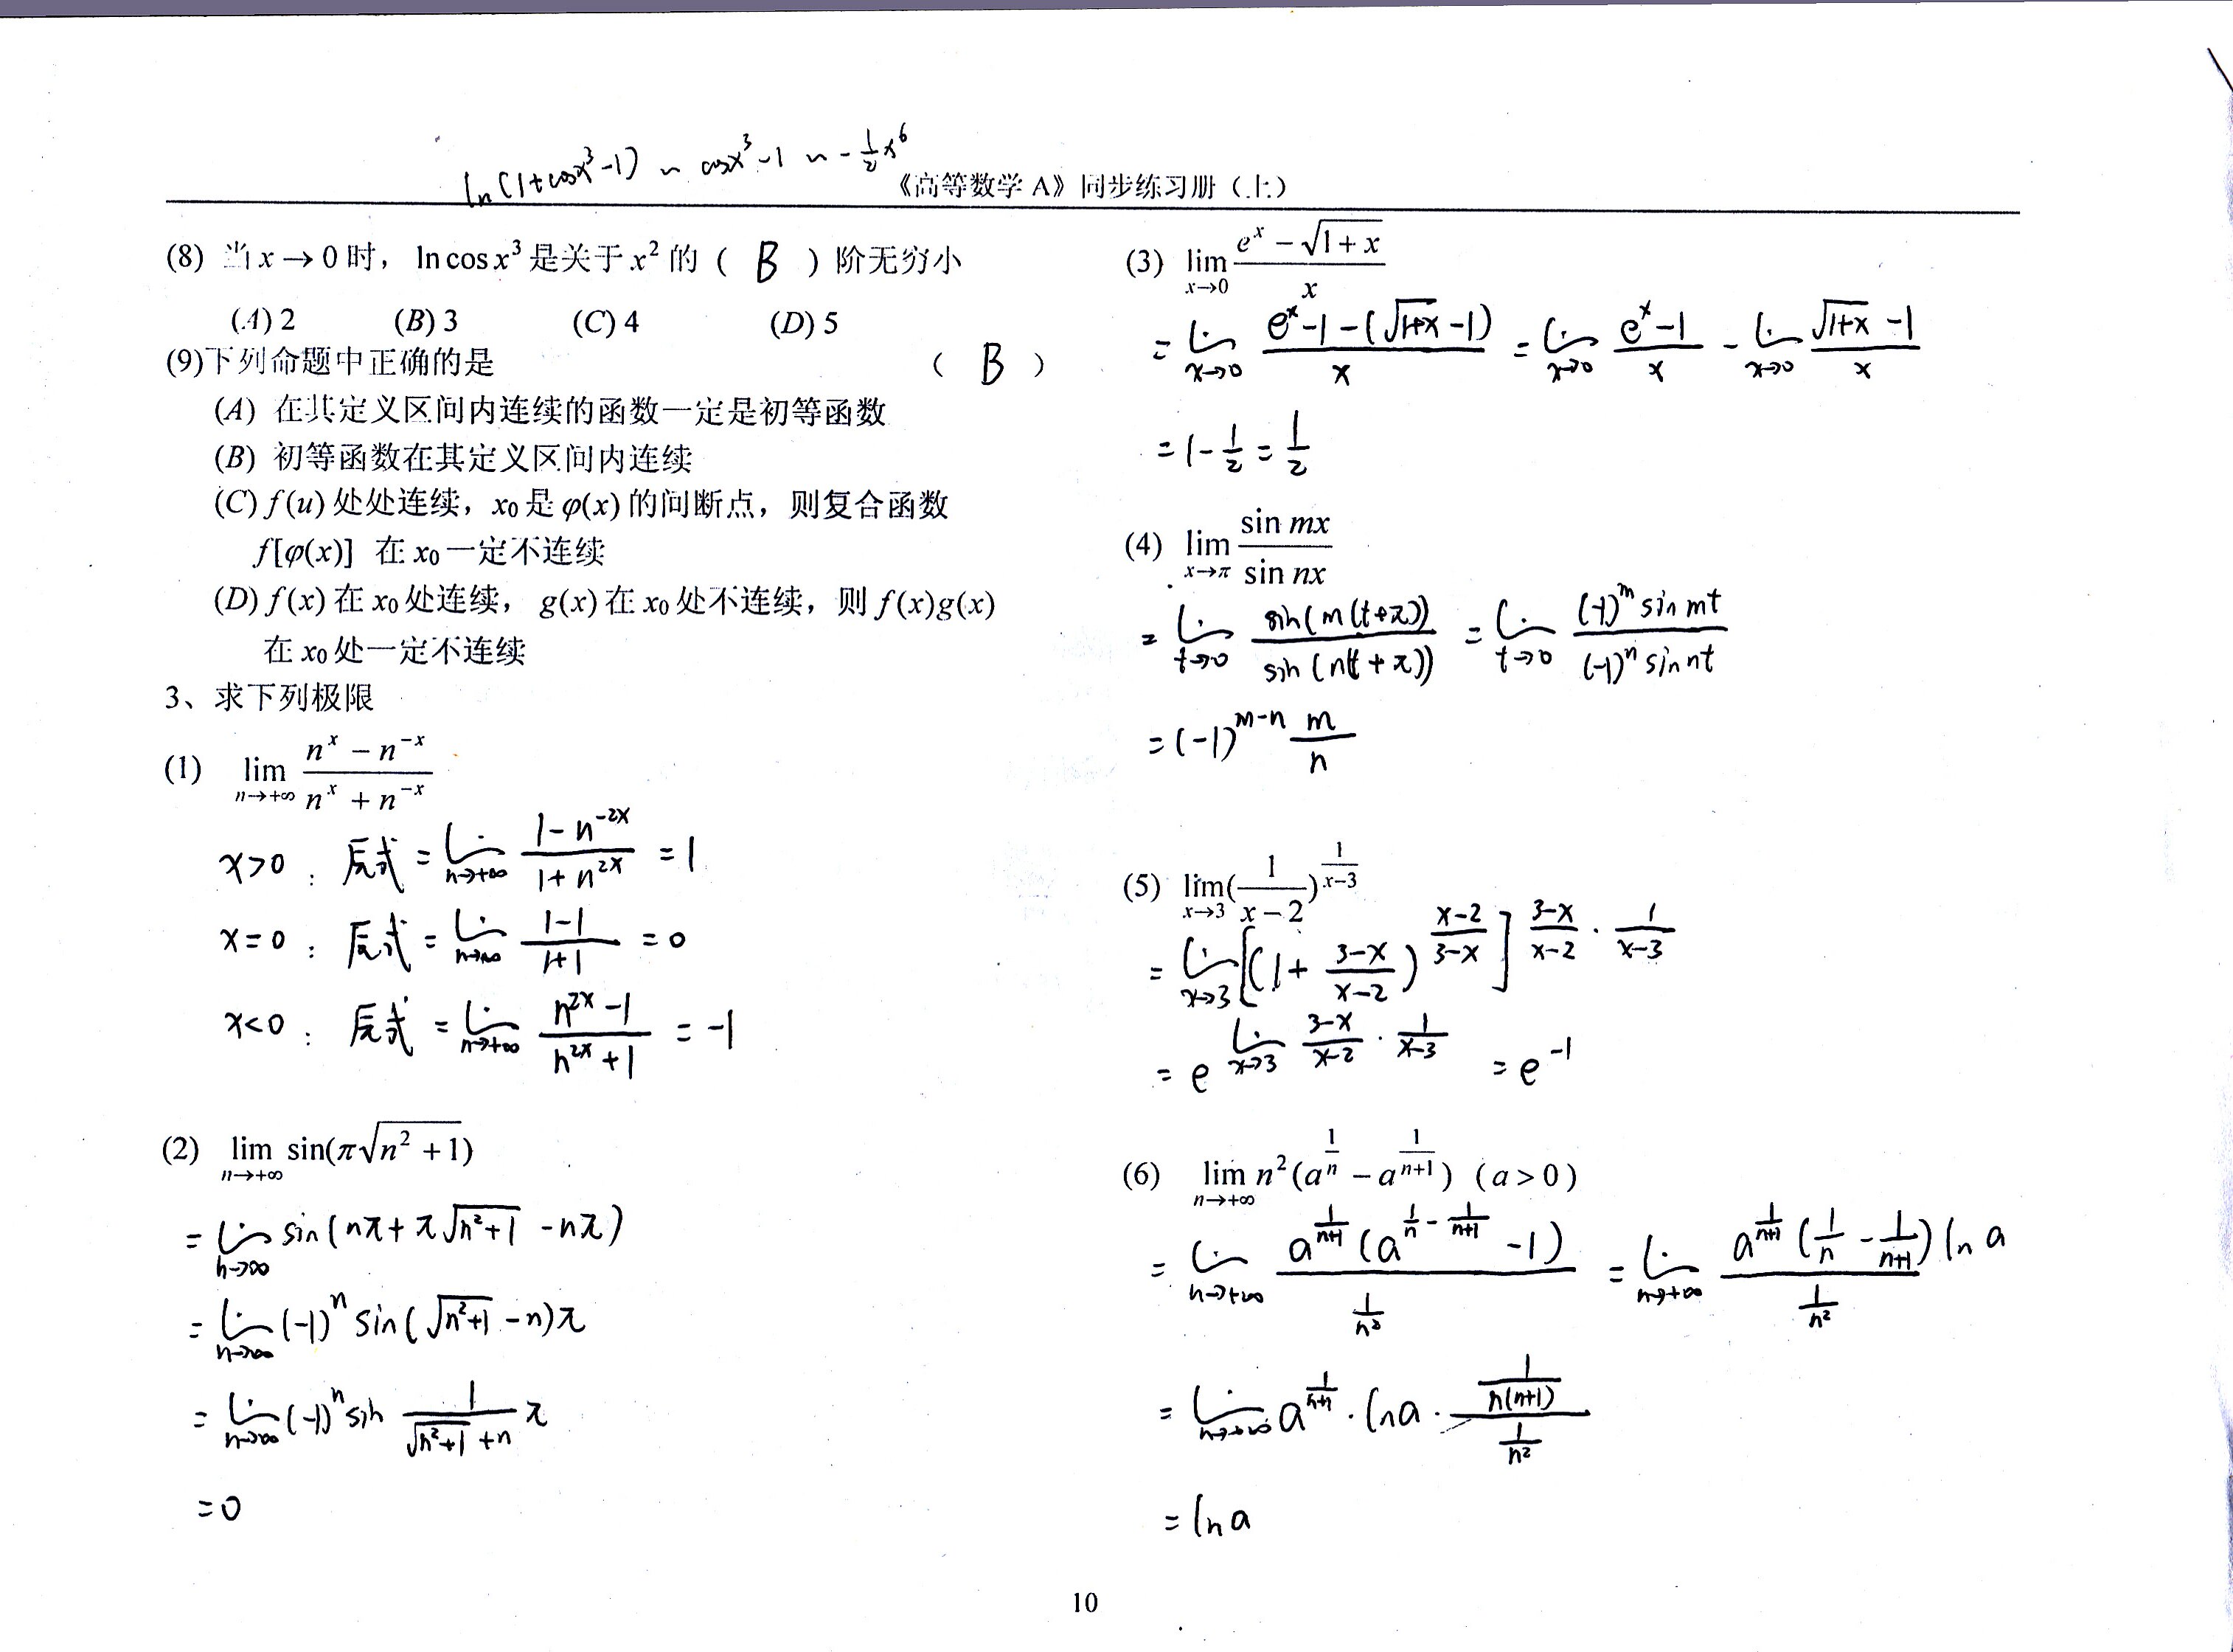 ln(1+cosx³-1) ~ cosx³-1 ~ -1/2 x⁶
《高等数学 A》同步练习册（上）
(8) 当 x→0 时，ln cos x³ 是关于 x² 的（ B ）阶无穷小
(A) 2 (B) 3 (C) 4 (D) 5
(9)下列命题中正确的是 （ B ）
(A) 在其定义区间内连续的函数一定是初等函数
(B) 初等函数在其定义区间内连续
(C) f(u) 处处连续，x₀ 是 φ(x) 的间断点，则复合函数
f[φ(x)] 在 x₀ 一定不连续
(D) f(x) 在 x₀ 处连续，g(x) 在 x₀ 处不连续，则 f(x)g(x)
在 x₀ 处一定不连续
3、求下列极限
(1) lim_{n→+∞} (n^x - n^{-x})/(n^x + n^{-x})
x>0: 原式 = lim_{n→+∞} (1-n^{-2x})/(1+n^{2x}) = 1
x=0: 原式 = lim_{n→∞} (1-1)/(1+1) = 0
x<0: 原式 = lim_{n→+∞} (n^{2x}-1)/(n^{2x}+1) = -1
(2) lim_{n→+∞} sin(π√(n²+1))
= lim_{n→∞} sin(nπ+π√(n²+1) -nπ)
= lim_{n→∞} (-1)^n sin(√(n²+1) -n)π
= lim_{n→∞} (-1)^n sin 1/(√(n²+1)+n) π
=0
(3) lim_{x→0} (e^x - √(1+x))/x
= lim_{x→0} (e^x-1-(√(1+x)-1))/x = lim_{x→0} (e^x-1)/x - lim_{x→0} (√(1+x)-1)/x
=1-1/2=1/2
(4) lim_{x→π} sin mx/sin nx
= lim_{t→0} sin(m(t+π))/sin(n(t+π)) = lim_{t→0} (-1)^m sin mt/(-1)^n sin nt
=(-1)^{m-n} m/n
(5) lim_{x→3} (1/(x-2))^{1/(x-3)}
= lim_{x→3} [(1+(3-x)/(x-2))^{(x-2)/(3-x)}]^{(3-x)/(x-2) · 1/(x-3)}
= e^{lim_{x→3} (3-x)/(x-2) · 1/(x-3)} = e^{-1}
(6) lim_{n→+∞} n²(a^{1/n} - a^{1/(n+1)}) (a>0)
= lim_{n→+∞} a^{1/(n+1)}(a^{1/n - 1/(n+1)} -1)/(1/n²) = lim_{n→+∞} a^{1/(n+1)}(1/n - 1/(n+1)) ln a/(1/n²)
= lim_{n→+∞} a^{1/(n+1)} · ln a · (1/(n(n+1)))/(1/n²)
= ln a
10